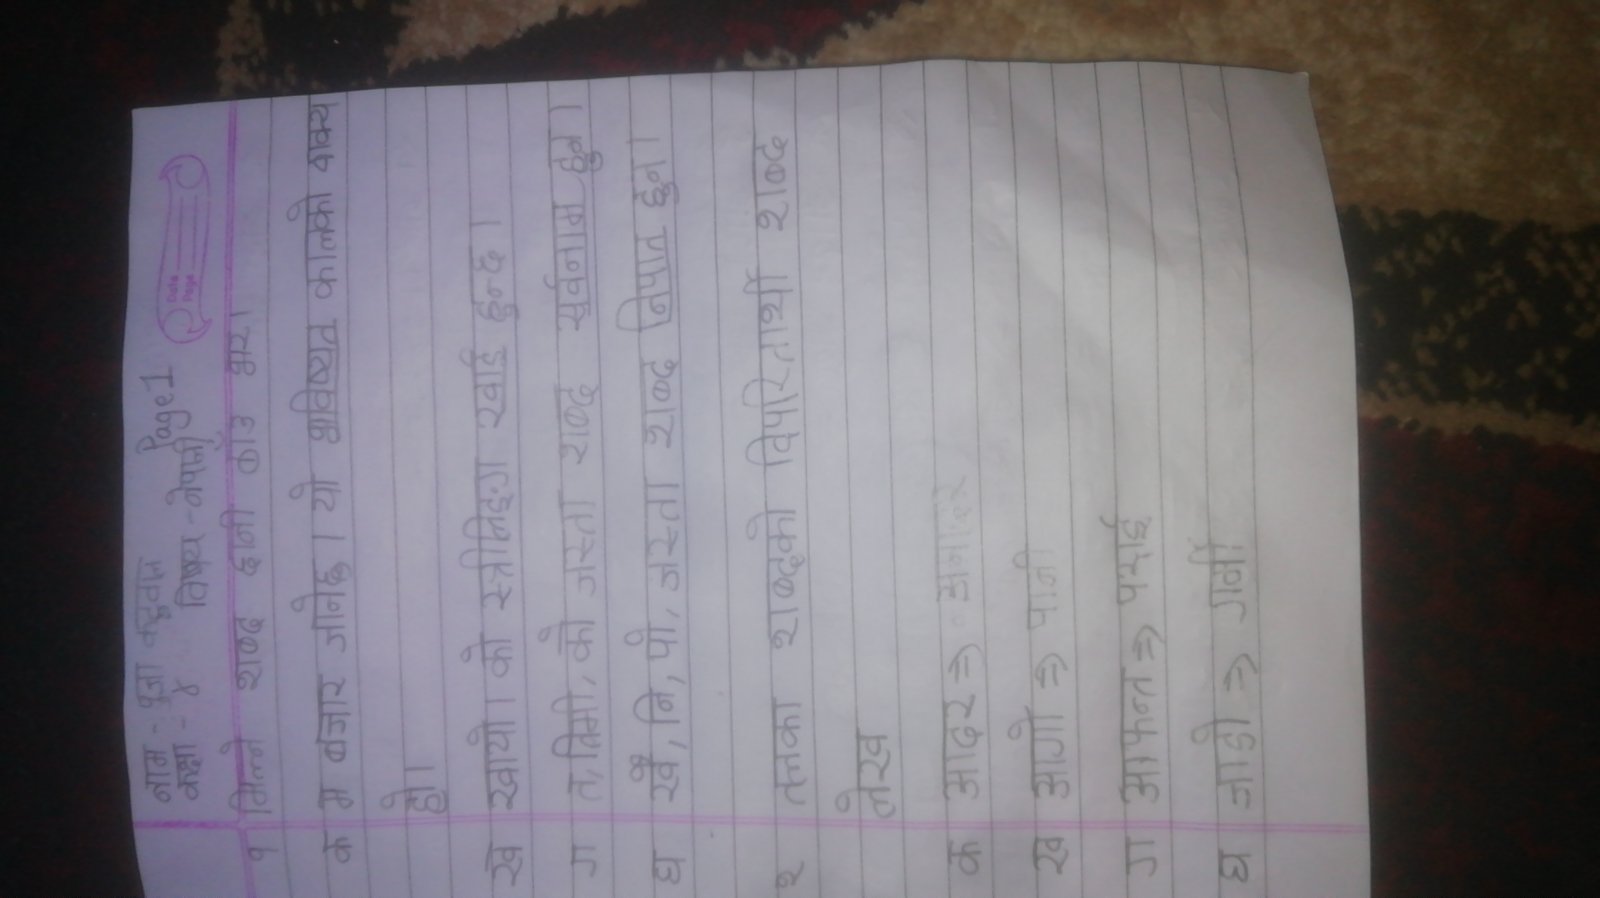 नाम - पुजा कटुवाल Page 1
कक्षा - ४ विषय - नेपाली
Date
Page
१ मिल्ने शब्द छानी ठाँउ भर।
क म बजार जानेछु। यो भविष्यत कालको वाक्य
हो।
ख खायो। को स्त्रीलिङ्ग खाई हुन्छ।
ग त, तिमी, को जस्ता शब्द सर्वनाम हुन।
घ खै, नि, पो, जस्ता शब्द निपात हुन।
२ तलका शब्दको विपरितार्थी शब्द
लेख
क आदर ⇒ अनादर
ख आगो ⇒ पानी
ग आफन्त ⇒ पराई
घ जाडो ⇒ गर्मी